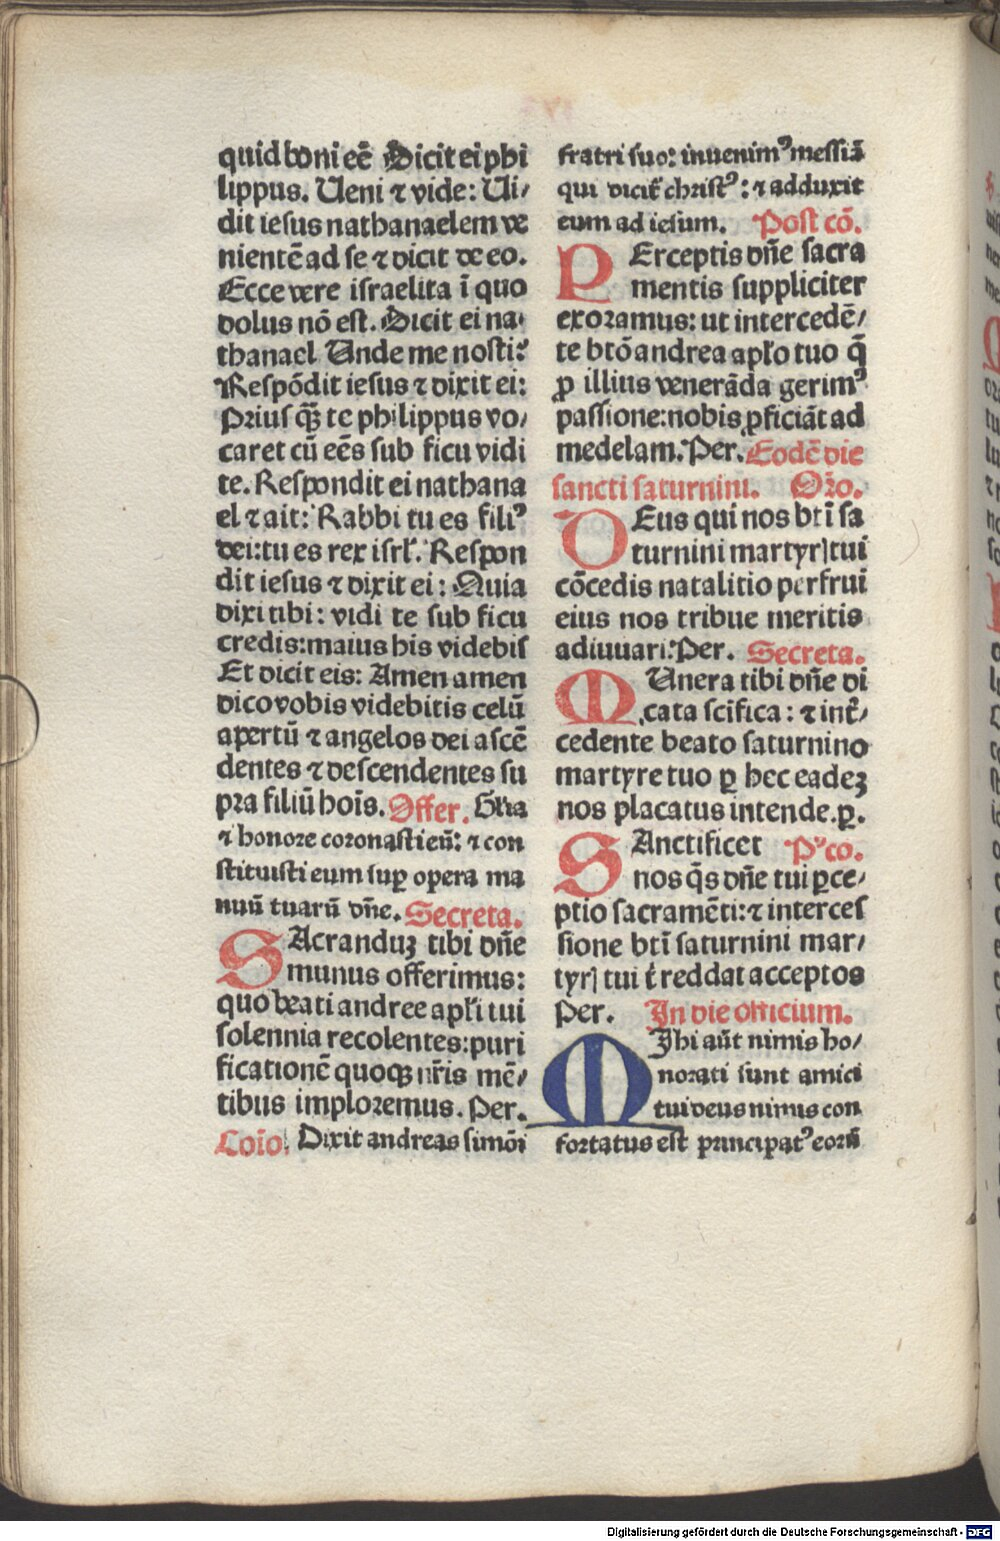 quid boni eē Dicit ei phi
lippus. Ueni ⁊ vide: Ui⸗
dit iesus nathanaelem ve
nientē ad se ⁊ dicit de eo.
Ecce vere israelita ī quo
dolus nō est. Dicit ei na⸗
thanael Unde me nosti?
Respōdit iesus ⁊ dixit ei:
Prius qȝ te philippus vo⸗
caret cū eēs sub ficu vidi
te. Respondit ei nathana
el ⁊ ait: Rabbi tu es filiꝰ
dei: tu es rex isrl̕. Respon
dit iesus ⁊ dixit ei: Quia
dixi tibi: vidi te sub ficu
credis: maius his videbis
Et dicit eis: Amen amen
dico vobis videbitis celū
apertū ⁊ angelos dei ascē
dentes ⁊ descendentes su
pra filiū hoīs. Offer. Gl̕ia
⁊ honore coronasti eū: ⁊ con
stituisti eum suꝑ opera ma
nuū tuarū dn̄e. Secreta.
SAcranduȝ tibi dn̄e
munus offerimus:
quo beati andree apl̕i tui
solennia recolentes: puri
ficationē quoqȝ nr̄is mē⸗
tibus imploremus. Per.
Coīo. Dixit andreas simōi
fratri suo: inuenimꝰ messiā
qui dicit̕ christꝰ: ⁊ adduxit
eum ad iesum. Post cō.
PErceptis dn̄e sacra
mentis suppliciter
exoramus: ut intercedē⸗
te btō andrea apl̕o tuo q̄
ꝓ illius venerāda gerimꝰ
passione: nobis ꝓficiāt ad
medelam. Per. Eodē die
sancti saturnini. Oȓo.
DEus qui nos btī sa
turnini martyrꝭ tui
cōcedis natalitio perfrui
eius nos tribue meritis
adiuuari. Per. Secreta.
MUnera tibi dn̄e di
cata scīfica: ⁊ int̕⸗
cedente beato saturnino
martyre tuo ꝑ hec eadeȝ
nos placatus intende. ꝑ.
SAnctificet Pꝰco.
nos q̄s dn̄e tui ꝑce⸗
ptio sacramēti: ⁊ interces
sione btī saturnini mar⸗
tyrꝭ tui t̕ reddat acceptos
Per. In die officium.
MIhi aūt nimis ho⸗
norati sunt amici
tui deus nimis con
fortatus est principatꝰ eorū
Digitalisierung gefördert durch die Deutsche Forschungsgemeinschaft - DFG